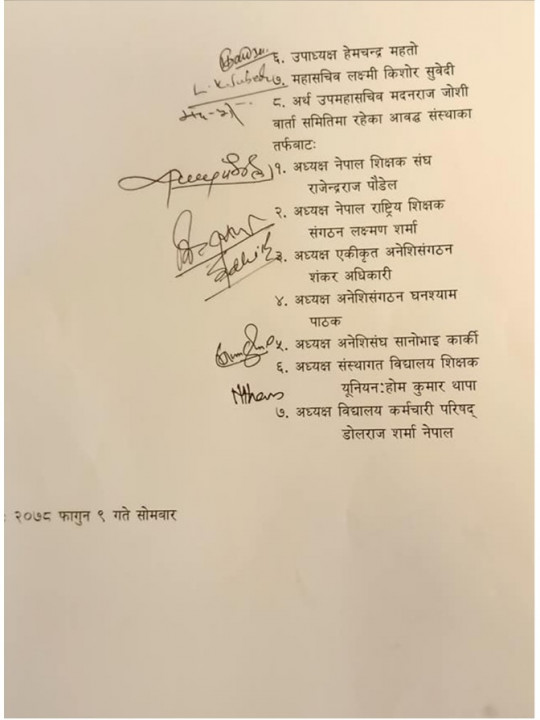 ६. उपाध्यक्ष हेमचन्द्र महतो
L.K.Subedi ७. महासचिव लक्ष्मी किशोर सुवेदी
८. अर्थ उपमहासचिव मदनराज जोशी
वार्ता समितिमा रहेका आवद्ध संस्थाका
तर्फबाटः
१. अध्यक्ष नेपाल शिक्षक संघ
राजेन्द्रराज पौडेल
२. अध्यक्ष नेपाल राष्ट्रिय शिक्षक
संगठन लक्ष्मण शर्मा
३. अध्यक्ष एकीकृत अनेशिसंगठन
शंकर अधिकारी
४. अध्यक्ष अनेशिसंगठन घनश्याम
पाठक
५. अध्यक्ष अनेशिसंघ सानोभाइ कार्की
६. अध्यक्ष संस्थागत विद्यालय शिक्षक
यूनियन:होम कुमार थापा
७. अध्यक्ष विद्यालय कर्मचारी परिषद्
डोलराज शर्मा नेपाल
: २०७८ फागुन ९ गते सोमवार